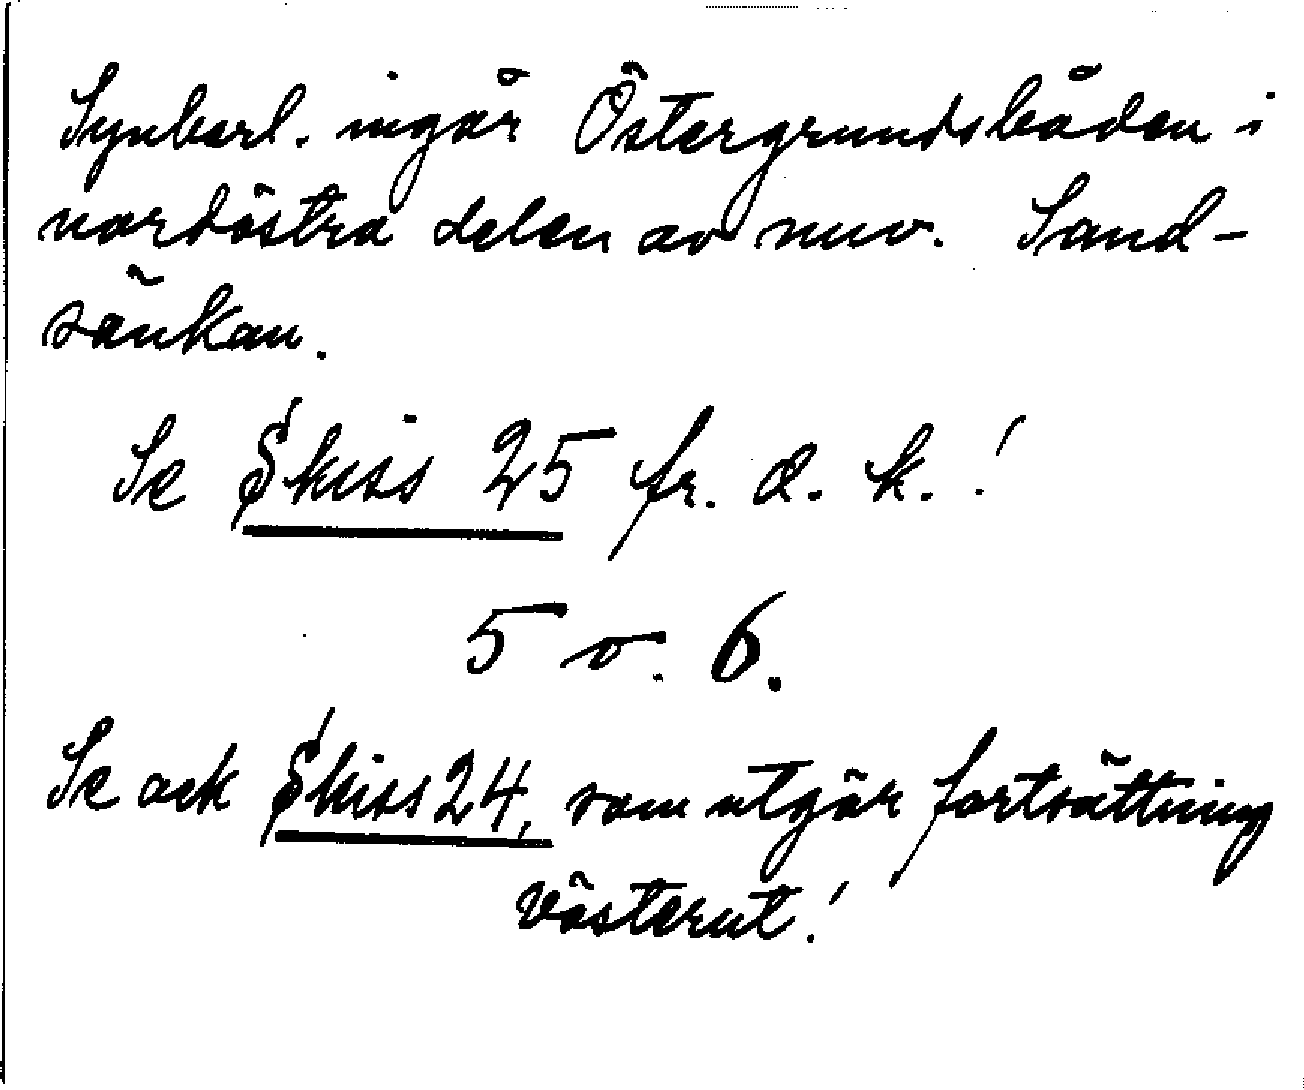 Synbarl. ingår Östergrundsbåden i
nordöstra delen av nuv. Sand-
sänkan.
Se Skiss 25 fr. d. k.!
5 o. 6.
Se ock Skiss 24, som utgör fortsättning
västerut!